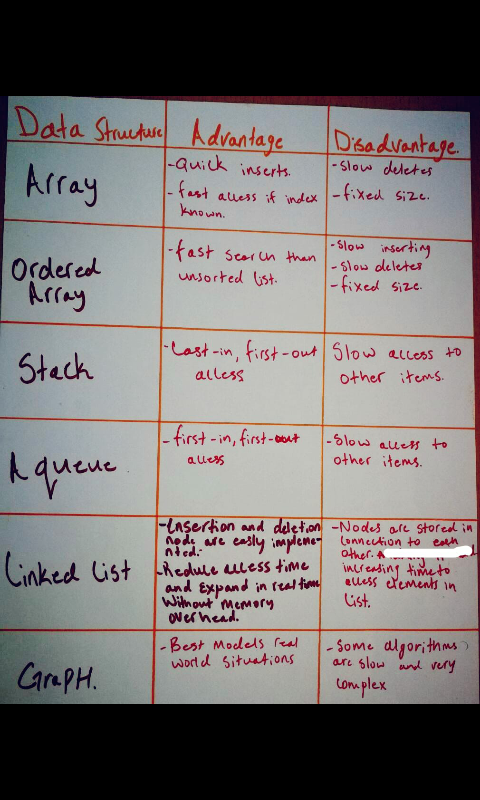 Data Structure
Advantage
Disadvantage.
Array
-Quick inserts.
-fast access if index
known.
-slow deletes
-fixed size.
Ordered
Array
-fast search than
unsorted list.
-Slow inserting
-slow deletes
-fixed size.
Stack
-Last-in, first-out
access
Slow access to
other items.
A queue
-first-in, first-out
access
-Slow access to
other items.
Linked List
-Insertion and deletion
node are easily impleme-
nted.
-Reduce access time
and Expand in real time
Without memory
overhead.
-Nodes are stored in
connection to each
other.
increasing time to
access elements in
list.
GrapH.
-Best Models real
world situations
-Some algorithms
are slow and very
complex